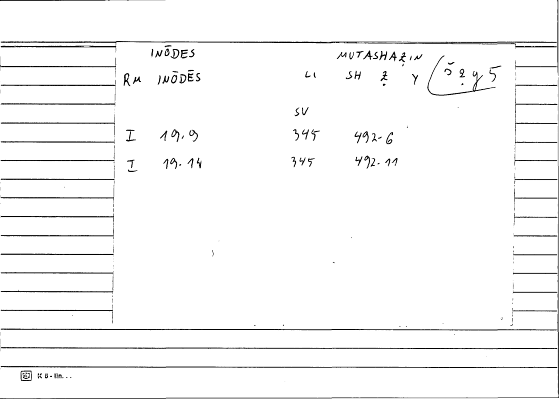 INŌDES MUTASHAẒIN
RM INŌDĒS LI SH Ẓ Y šẓy5
SV
I 19.9 345 492-6
I 19.14 345 492-11